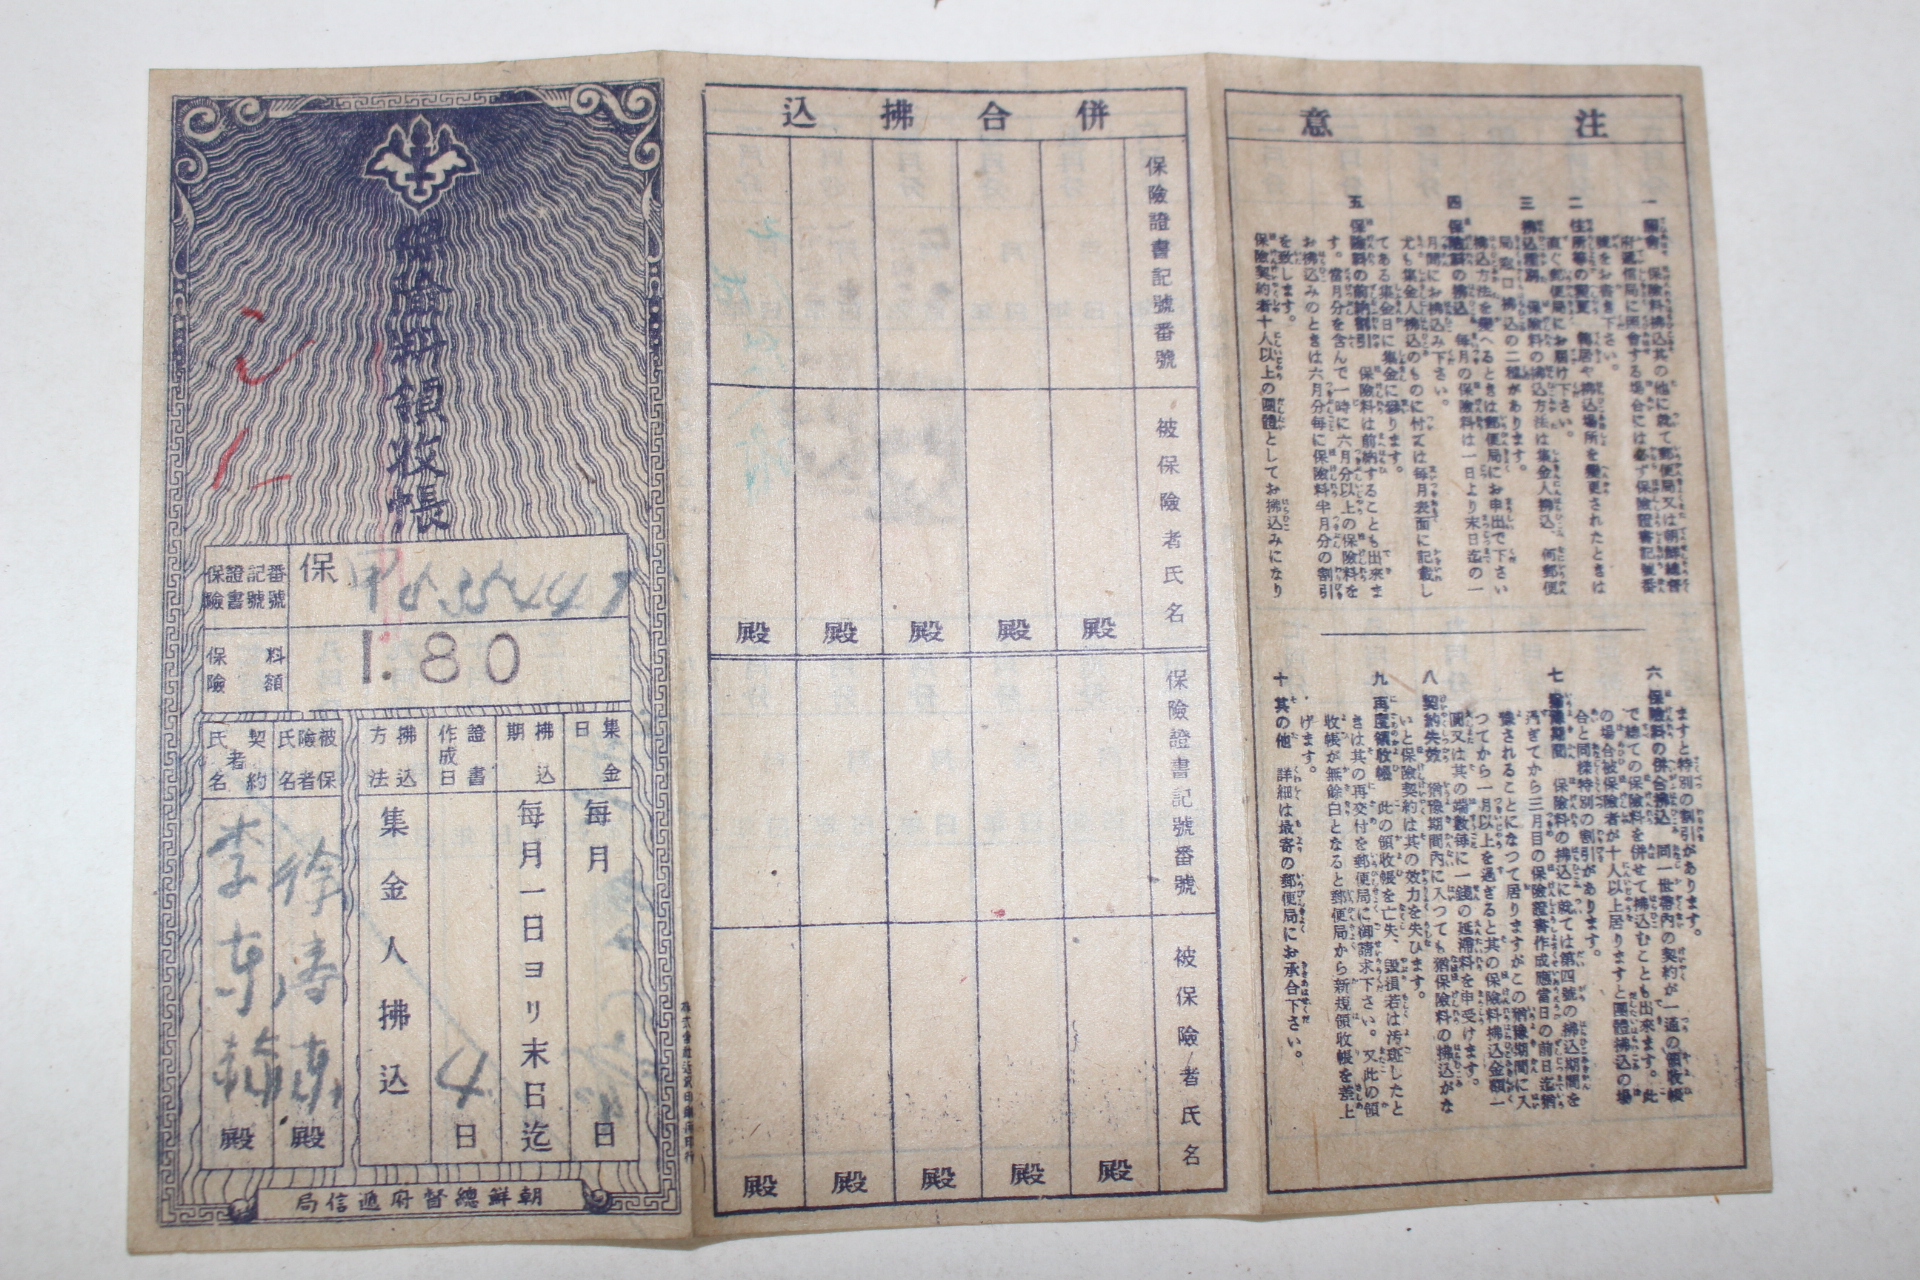 保險料領收帳
保險證書記號番號
保
保險料額
1.80
集金日
每月
日
拂込期
每月一日ヨリ末日迄
證書作成日
日
拂込方法
集金人拂込
被保險者氏名
徐
殿
契約者氏名
李東
殿
朝鮮總督府遞信局
併合拂込
保險證書記號番號
被保險者氏名
殿
殿
殿
殿
殿
保險證書記號番號
被保險者氏名
殿
殿
殿
殿
殿
注意
一 照會 保險料拂込其の他に就て郵便局又は朝鮮總督
府遞信局に照會する場合には必ず保險證書記號番
號をお書き下さい。
二 住所等の變更 轉居や拂込場所を變更されたときは
直ぐ郵便局にお屆け下さい。
三 拂込種別 保險料の拂込方法は集金人拂込、何郵便
局窓口拂込の二種があります。
拂込方法を變へるときは郵便局にお申出で下さい
四 保險料の拂込 每月の保險料は一日より末日迄の一
月間にお拂込み下さい。
尤も集金人拂込のものに付ては每月表面に記載し
てある集金日に集金に參ります。
五 保險料の前納割引 保險料は前納することも出來ま
す。當月分を含んで一時に六月分以上の保險料を
お拂込みのときは六月分每に保險料半月分の割引
を致します。
保險契約者十人以上の團體としてお拂込みになり
ますと特別の割引があります。
六 保險料の併合拂込 同一世帶內の契約が一通の領收帳
で總ての保險料を併せて拂込むことも出來ます。此
の場合被保險者が十人以上居りますと團體拂込の場
合と同樣特別の割引があります。
七 猶豫期間 保險料の拂込に就ては第四號の拂込期間を
過ぎてから三月目の保險證書作成應當日の前日迄猶
豫されることになつて居りますがこの猶豫期間に入
つてから一月以上を過ぎると其の保險料拂込金額一
圓又は其の端數每に一錢の延滯料を申受けます。
八 契約失效 猶豫期間內に入つても猶保險料の拂込がな
いと保險契約は其の效力を失ひます。
九 再度領收帳 此の領收帳を亡失、毀損若は汚斑したと
きは其の再交付を郵便局に御請求下さい。又此の領
收帳が無餘白となると郵便局から新規領收帳を差上
げます。
十 其の他 詳細は最寄の郵便局にお承合下さい。